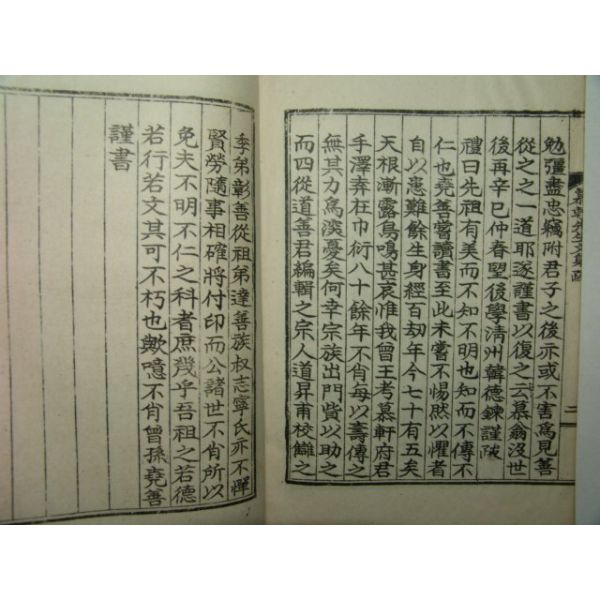 勉彊盡忠竊附君子之後亦或不害爲見善
從之之一道耶遂謹書以復之云慕翁沒世
後再辛巳仲春望後學淸州韓德鍊謹跋
禮曰先祖有美而不知不明也知而不傳不
仁也堯善嘗讀書至此未嘗不惕然以懼者
自以患難餘生身經百刼年今七十有五矣
天根漸露鳥鳴甚哀惟我曾王考慕軒府君
手澤弆在巾衍八十餘年不肖每以壽傳之
無其力爲深憂矣何幸宗族出門貲以助之
而四從道善君編輯之宗人道昇甫校讎之
季弟彰善從祖弟達善族叔志寧氏亦不憚
賢勞隨事相確將付印而公諸世不肖所以
免夫不明不仁之科者庶幾乎吾祖之若德
若行若文其可不朽也歟噫不肖曾孫堯善
謹書
二